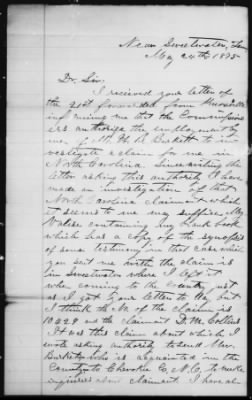 Near Sweetwater, Tenn
May 24th 1875
Dr. Sir:
I recieved your letter of
the 21st forwarded from Knoxville
informing me that the Commission-
ers authorize the employment by
me of H. R. Buskett to in-
vestigate a claim for me in
North Carolina. Since writing the
letter asking this authority I have
made an investigation of that
North Carolina claimant which
it seems to me may suffice. My
Valise containing my Hand book
which has a copy of the synopsis
of some testimony in that case which
you sent me with the claim is
in Sweetwater where I left it
when coming to the Country just
as I got your letter to day, but
I think the No of the claim is
10229 and the claimant D. M. Collins
It was this claim about which I
wrote asking authority to send Mr.
who is acquainted in the
Country to Cherokee Co, N.C. to make
enquiries about Claimant. I have al-